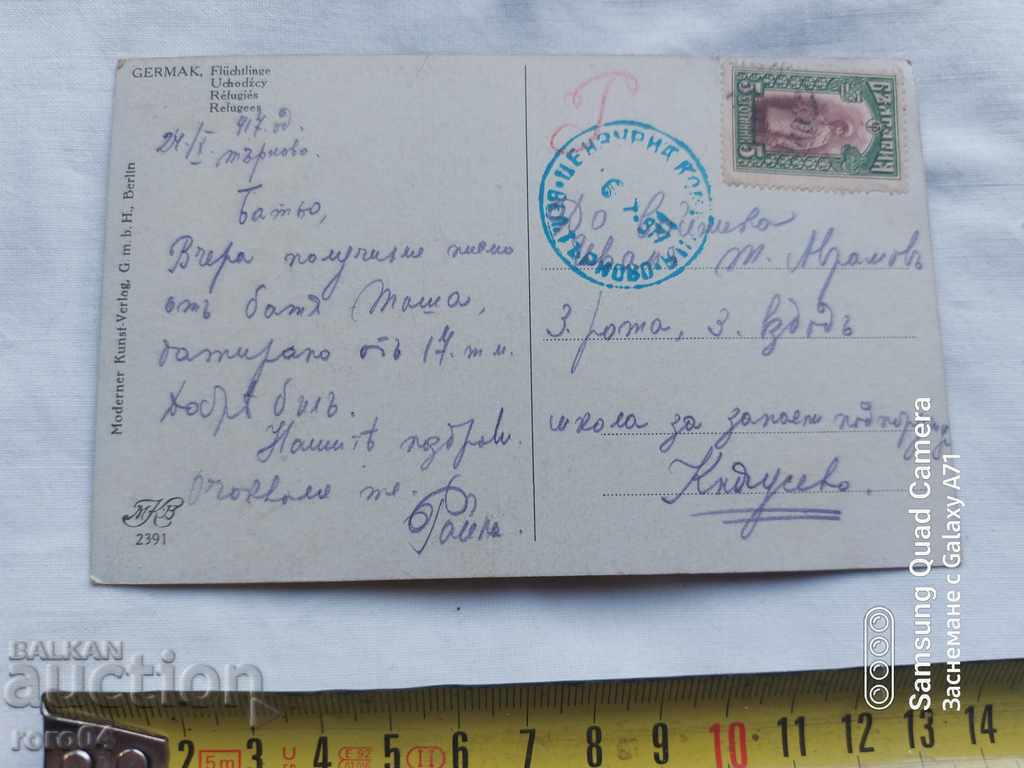 GERMAK, Flüchtlinge
Uchodźcy
Réfugiés
Refugees
24./I. 917. од.
търново.
Батьо,
Вчера получихме писмо
отъ батя Тоша,
датирано отъ 17. т. м.
Добрѣ билъ.
Нашитѣ поздрави.
Очакваме те.
Moderner Kunst-Verlag, G. m. b. H., Berlin
MKB
2391
България
5 стотинки 5
ЦЕНЗУРНА
ТЪРНОВО
До
Т. Аврамовъ
3. рота, 3. взводъ
школа за запасни подпоруч
Княжево.
BALKAN
auction
roro04
2 3 4 5 6 7 8 9 10 11 12 13 14
5m
II
Samsung Quad Camera
Заснемане с Galaxy A71